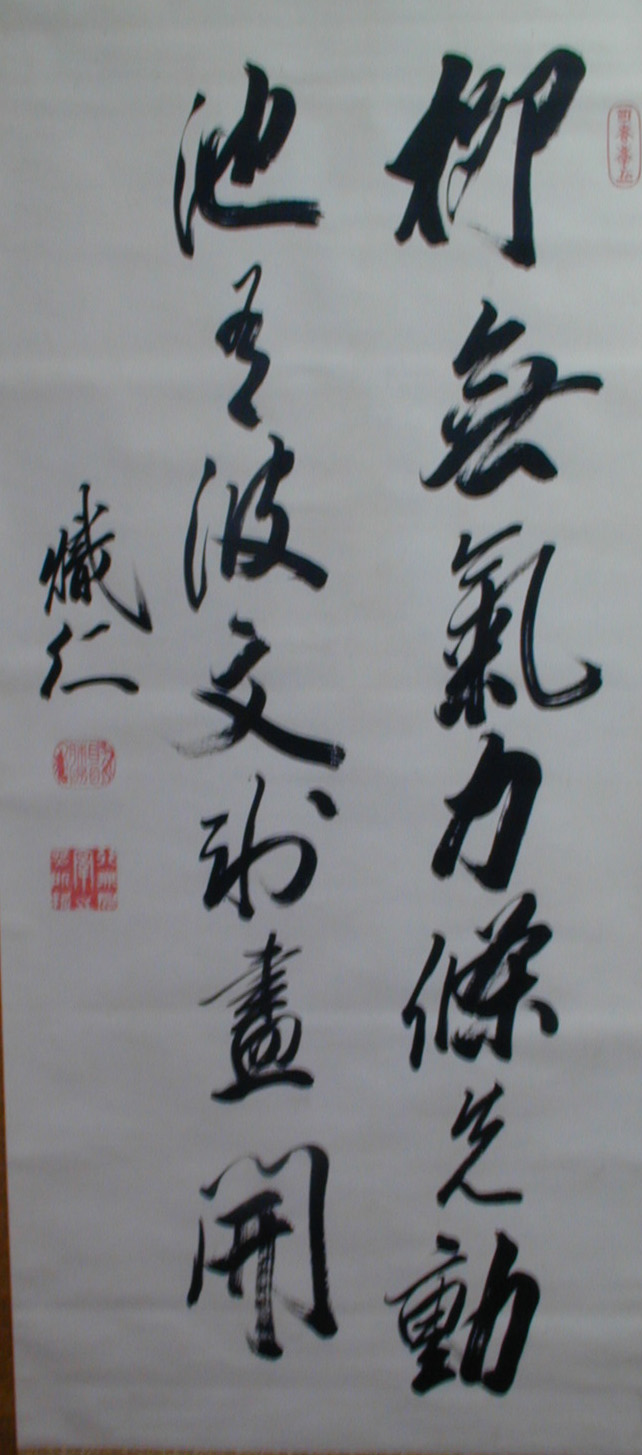 柳無氣力條先動
池有波文氷盡開
熾仁